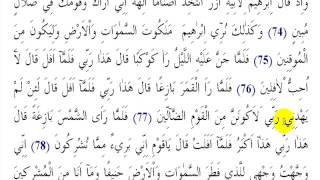 وَإِذْ قَالَ إِبْرَٰهِيمُ لِأَبِيهِ آزَرَ أَتَتَّخِذُ أَصْنَامًا آلِهَةً إِنِّي أَرَاكَ وَقَوْمَكَ فِي ضَلَالٍ
مُبِينٍ (74) وَكَذَٰلِكَ نُرِي إِبْرَٰهِيمَ مَلَكُوتَ السَّمَوَاتِ وَالْأَرْضِ وَلِيَكُونَ مِنَ
الْمُوقِنِينَ (75) فَلَمَّا جَنَّ عَلَيْهِ اللَّيْلُ رَأَى كَوْكَبًا قَالَ هَٰذَا رَبِّي فَلَمَّا أَفَلَ قَالَ لَا
أُحِبُّ الْآفِلِينَ (76) فَلَمَّا رَأَى الْقَمَرَ بَازِغًا قَالَ هَٰذَا رَبِّي فَلَمَّا أَفَلَ قَالَ لَئِنْ لَمْ
يَهْدِنِي رَبِّي لَأَكُونَنَّ مِنَ الْقَوْمِ الضَّالِّينَ (77) فَلَمَّا رَأَى الشَّمْسَ بَازِغَةً قَالَ
هَٰذَا رَبِّي هَٰذَا أَكْبَرُ فَلَمَّا أَفَلَتْ قَالَ يَاقَوْمِ إِنِّي بَرِيءٌ مِمَّا تُشْرِكُونَ (78) إِنِّي
وَجَّهْتُ وَجْهِيَ لِلَّذِي فَطَرَ السَّمَوَاتِ وَالْأَرْضَ حَنِيفًا وَمَا أَنَا مِنَ الْمُشْرِكِينَ